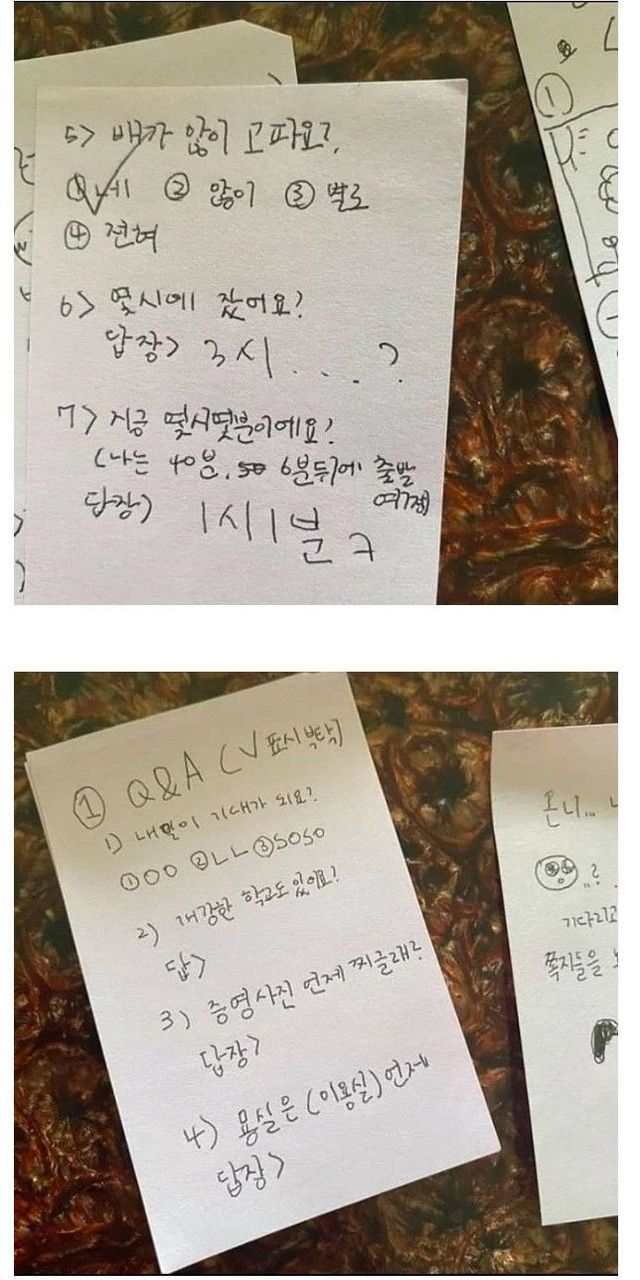 5> 배가 않이 고파요?
① 네 ② 않이 ③ 별로
④ 전혀
6> 몇시에 잤어요?
답장> 3시....?
7> 지금 몇시몇분이에요?
(나는 40분, 6분뒤에 출발
답장> 1시1분ㅋ
①
① Q&A (V 표시 부탁)
1) 내일이 기대가 되요?
①OO ②LL ③SOSO
2) 개강한 학교도 있어요?
답>
3) 증명사진 언제 찌글래?
답장>
4) 용실은 (이용실) 언제
답장>
온니...
..?
기다리고
쪽지들을